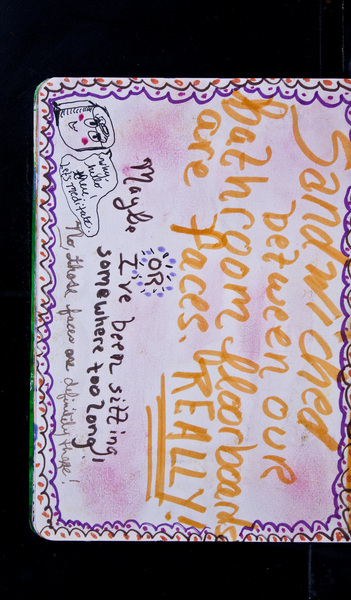 Sandwiched
between our
bathroom floorboards
are faces. REALLY!
Maybe
OR
I've been sitting
somewhere too long!
Why,
hello
there!
let's meditate.
No, those faces are definitely there!